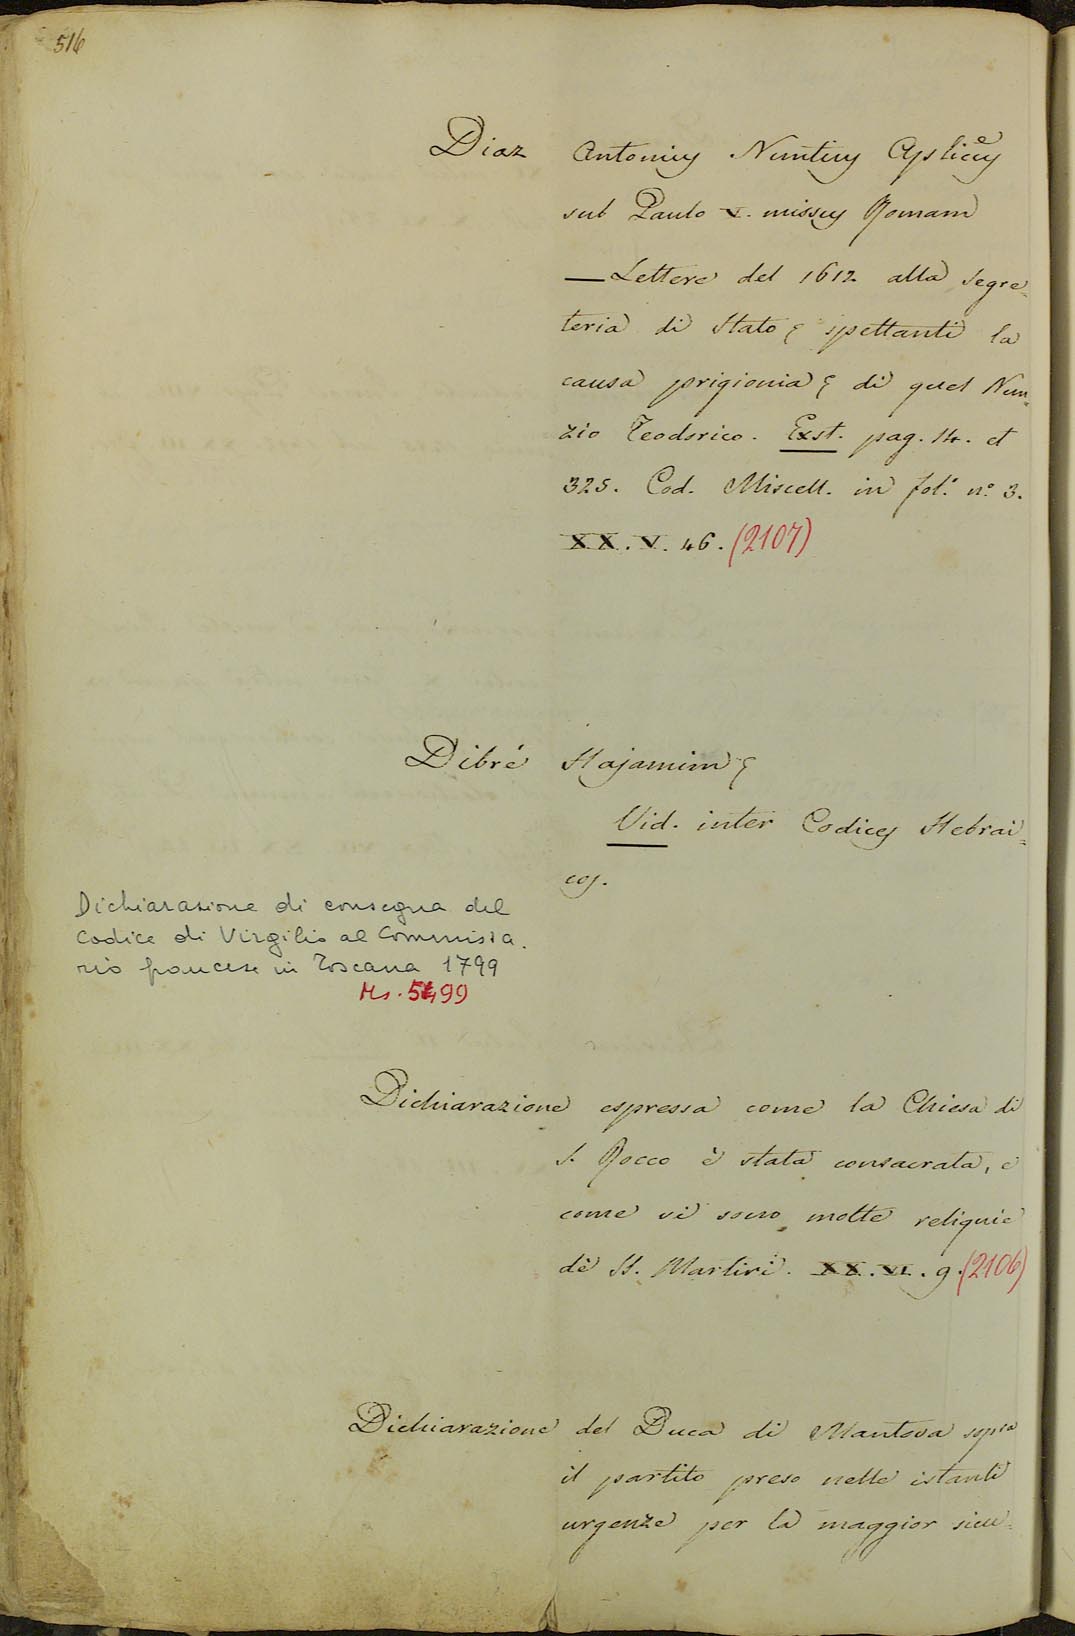 516
Diaz Antonius Nuntius Aplicus
sub Paulo V. missus Romam
— Lettere del 1612 alla Segre=
teria di Stato & spettanti la
causa prigionia & di quel Nun=
zio Teodorico. Exst. pag. 14. et
325. Cod. Miscell. in fol.º nº 3.
XX. V. 46. (2107)
Dibré Hajamim &
Vid. inter Codices Hebrai=
cos.
Dichiarazione di consegna del
Codice di Virgilio al Commissa.
rio francese in Toscana 1799
Ms. 5499
Dichiarazione espressa come la Chiesa di
S. Rocco è stata consacrata, e
come vi sono molte reliquie
dè SS. Martiri. XX. VI. 9. (2106)
Dichiarazione del Duca di Mantova sopra
il partito preso nelle istanti
urgenze per la maggior sicu=